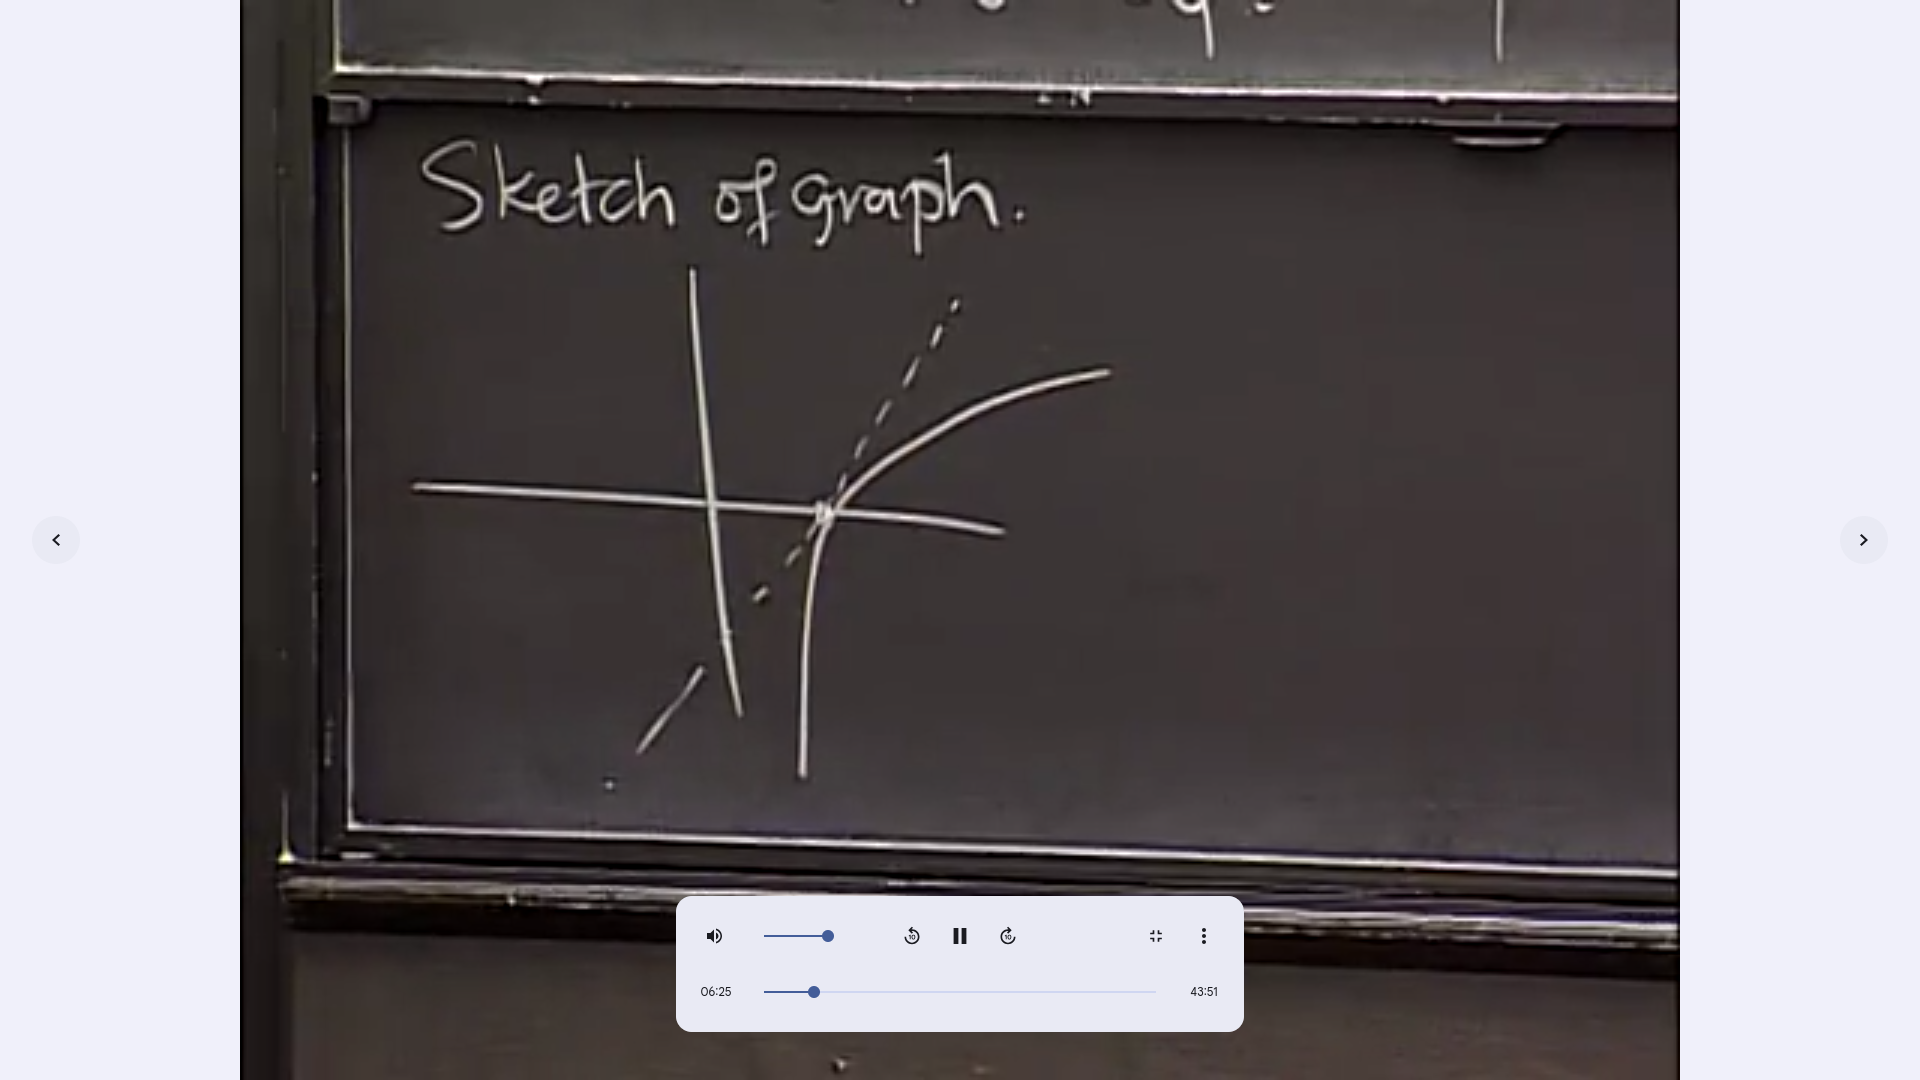 Sketch of graph.
06:25
43:51